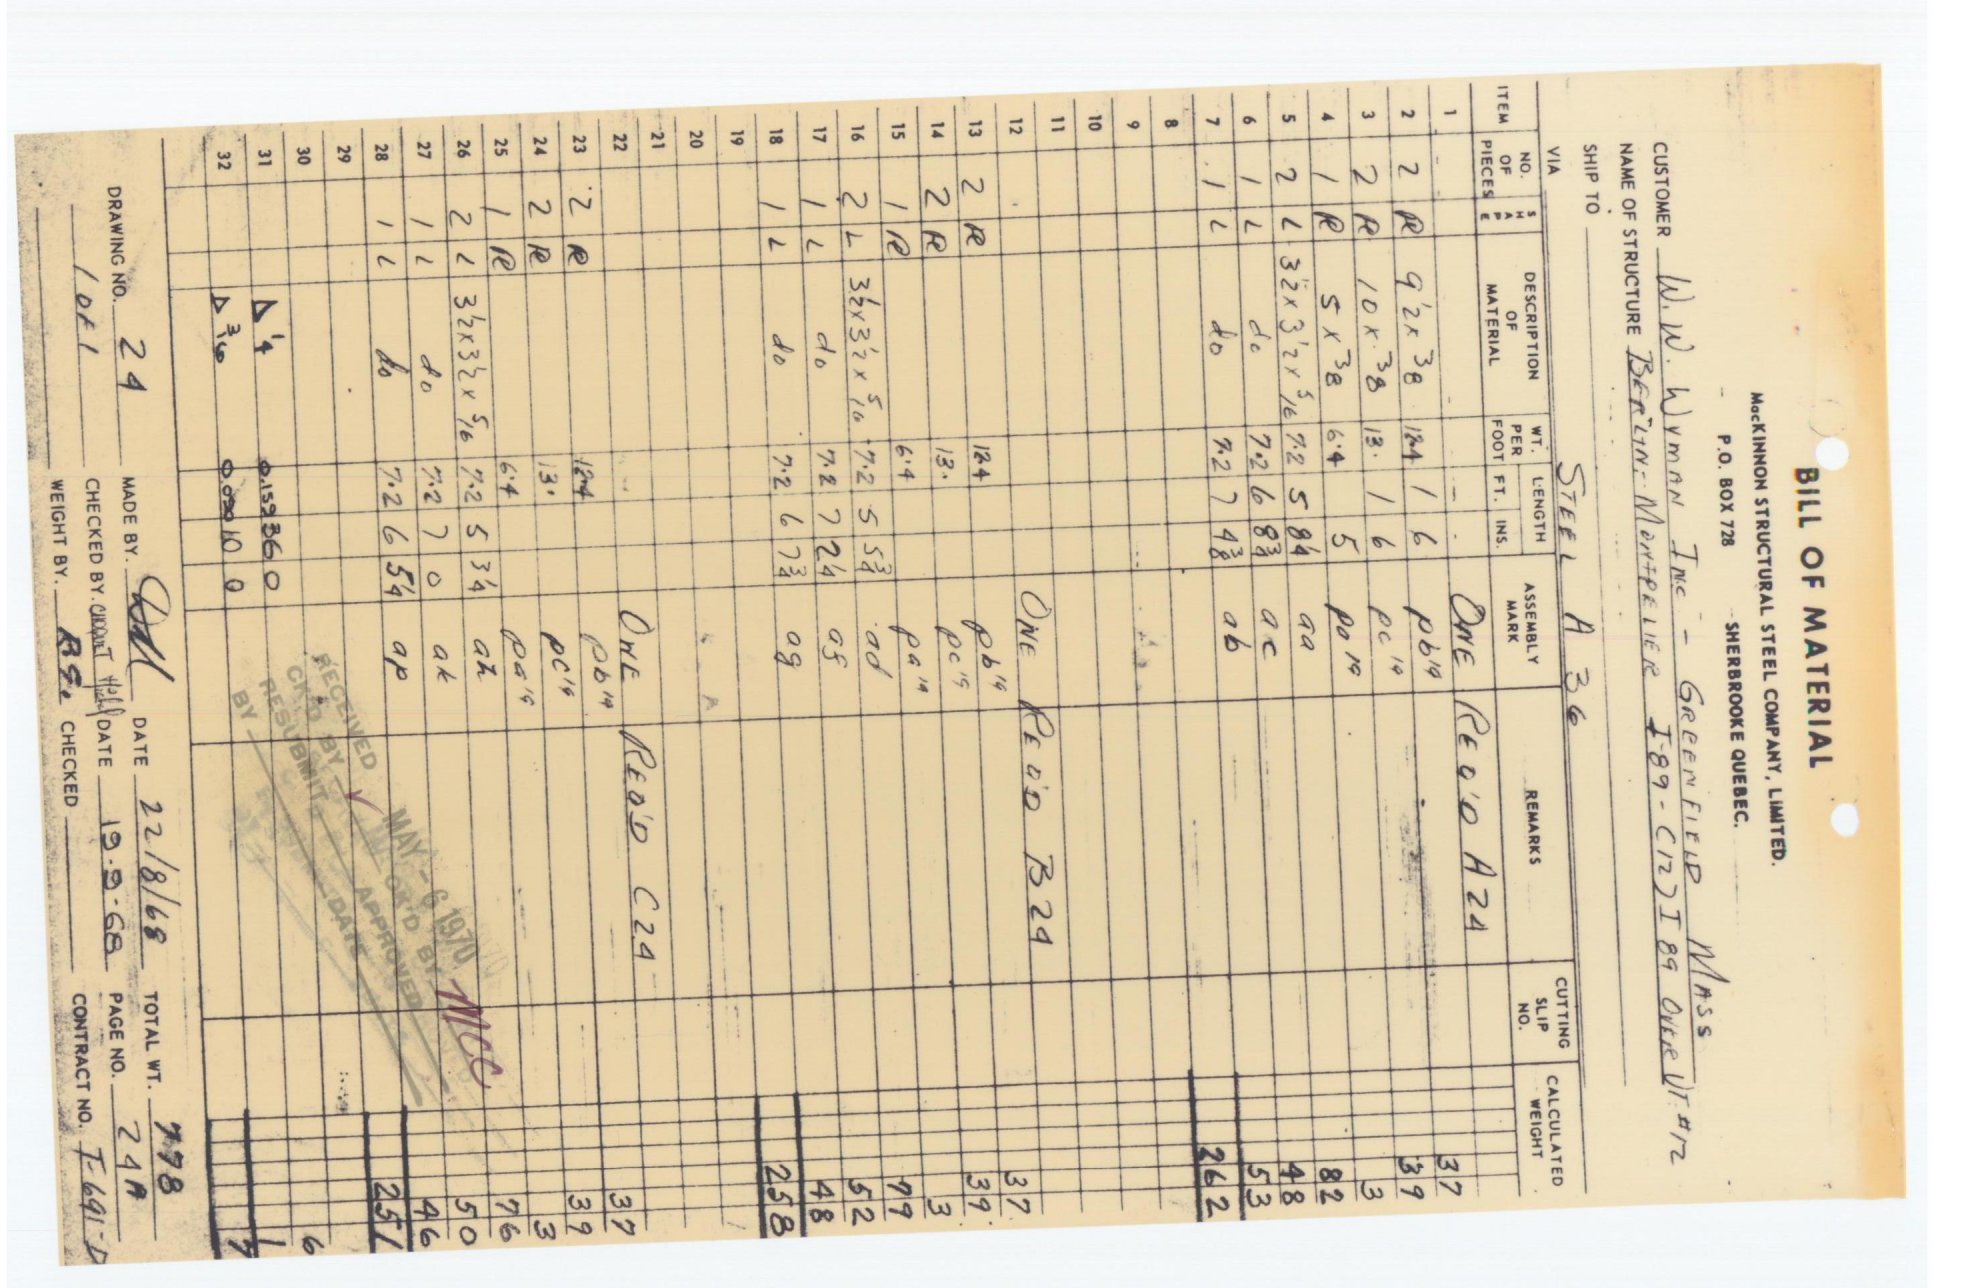 BILL OF MATERIAL
MacKINNON STRUCTURAL STEEL COMPANY, LIMITED.
P.O. BOX 728 SHERBROOKE QUEBEC.
CUSTOMER W.W. WYMAN INC - GREENFIELD MASS
NAME OF STRUCTURE BERLIN-MONTPELIER I-89-C(12) I 89 OVER VT #12
SHIP TO
VIA STEEL A 36
ITEM NO. OF PIECES SHAPE DESCRIPTION OF MATERIAL WT. PER FOOT LENGTH FT. INS. ASSEMBLY MARK REMARKS CUTTING SLIP NO. CALCULATED WEIGHT
1 ONE REQ'D A24
2 2 PL 9 1/2 x 3/8 12.1 1 6 pb19 37
3 2 PL 10 x 3/8 13. 1 6 pc19 39
4 1 PL 5 x 3/8 6.4 5 pa19 3
5 2 L 3 1/2 x 3 1/2 x 5/16 7.2 5 8 1/4 aa 82
6 1 L do 7.2 6 8 3/4 ac 48
7 1 L do 7.2 7 4 3/8 ab 53
8 262
9
10
11
12 ONE REQ'D B24
13 2 PL 12.1 pb19 37
14 2 PL 13. pc19 39
15 1 PL 6.4 pa19 3
16 2 L 3 1/2 x 3 1/2 x 5/16 7.2 5 5 3/4 ad 79
17 1 L do 7.2 7 2 1/4 af 52
18 1 L do 7.2 6 7 3/4 ag 48
19 258
20
21
22 ONE REQ'D C24
23 2 PL 12.1 pb19 37
24 2 PL 13. pc19 39
25 1 PL 6.4 pa19 3
26 2 L 3 1/2 x 3 1/2 x 5/16 7.2 5 3 1/4 ah 76
27 1 L do 7.2 7 0 ak 50
28 1 L do 7.2 6 5 1/4 ap 46
29 251
30
31 Δ 1/4 0.159 36 0 6
32 Δ 3/16 0.090 10 0 1
7
RECEIVED MAY - 6 1970
CK'D BY OK'D BY MCC
RESUBMIT APPROVED
BY DATE
DRAWING NO. 24 MADE BY. DATE 22/8/68 TOTAL WT. 778
1 OF 1 CHECKED BY. DATE 19.9.68 PAGE NO. 24A
WEIGHT BY. CHECKED CONTRACT NO. T-691-D